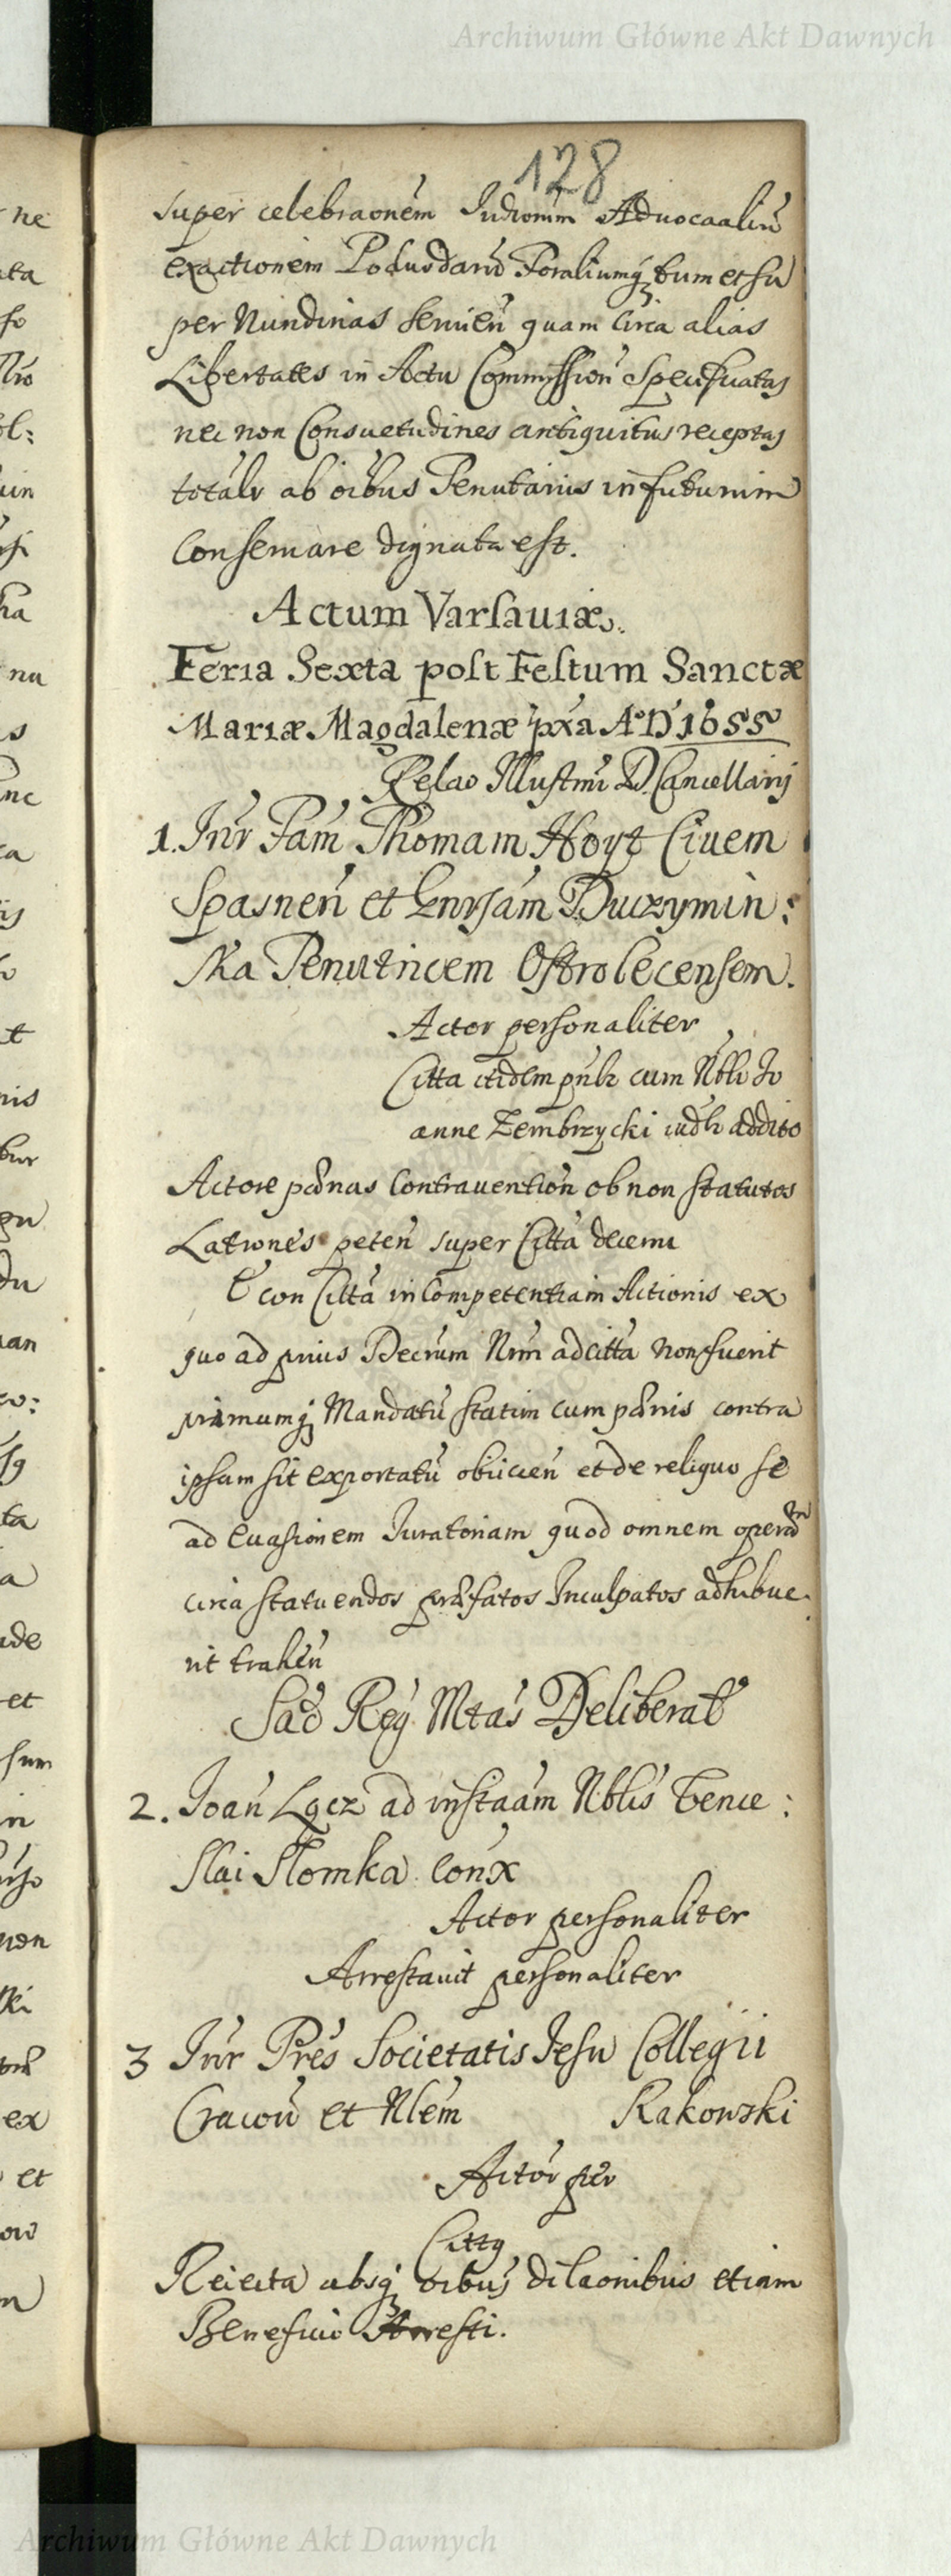 Archiwum Główne Akt Dawnych
128
super celebraonem Iudiciorum Aduocaaliũ
exactionem Poduodarũ Foraliumq tum et su
per Nundinas Seruień quam circa alias
Libertates in Actu Commissioń Specificatas
nec non Consuetudines antiquitus receptas
totalr ab oibus Tenutariis in futurum
Conseruare dignata est.
Actum Varsauiæ.
Feria Sexta post Festum Sanctæ
Mariæ Magdalenæ pxa A°D 1655
Relao Illustrmi D. Cancellarij
1. Intr Fam Thomam Hoyt Ciuem
Spasneń et Gnrsam Duczymin:
ska Tenutricem Ostrolecensem.
Actor personaliter
Citta itidem pnlr cum Nbli Jo
anne Zembrzycki iudlr addito
Actore pœnas Contrauentioń ob non statutos
Latrones peteń super Citta decerni
E con Citta incompetentiam Actionis ex
quo ad prius Decrum Nrm adcitta non fuerit
primumq Mandatũ statim cum pœnis contra
ipsam sit exportatũ obiicień et de reliquo se
ad Euasionem Iuratoriam quod omnem operam
circa statuendos præfatos Inculpatos adhibue
rit traheń
Sad Regʼ Mtas Deliberat
2. Ioań Lącz ad instaam Nblis Vence:
slai Slomka Conx
Actor personaliter
Arrestauit personaliter
3 Intr Pres Societatis Jesu Collegii
Cracoń et Nlem Rakowski
Actor per
Cittq
Reiecta absq oibus dilaonibus etiam
Beneficio Arresti.
Archiwum Główne Akt Dawnych